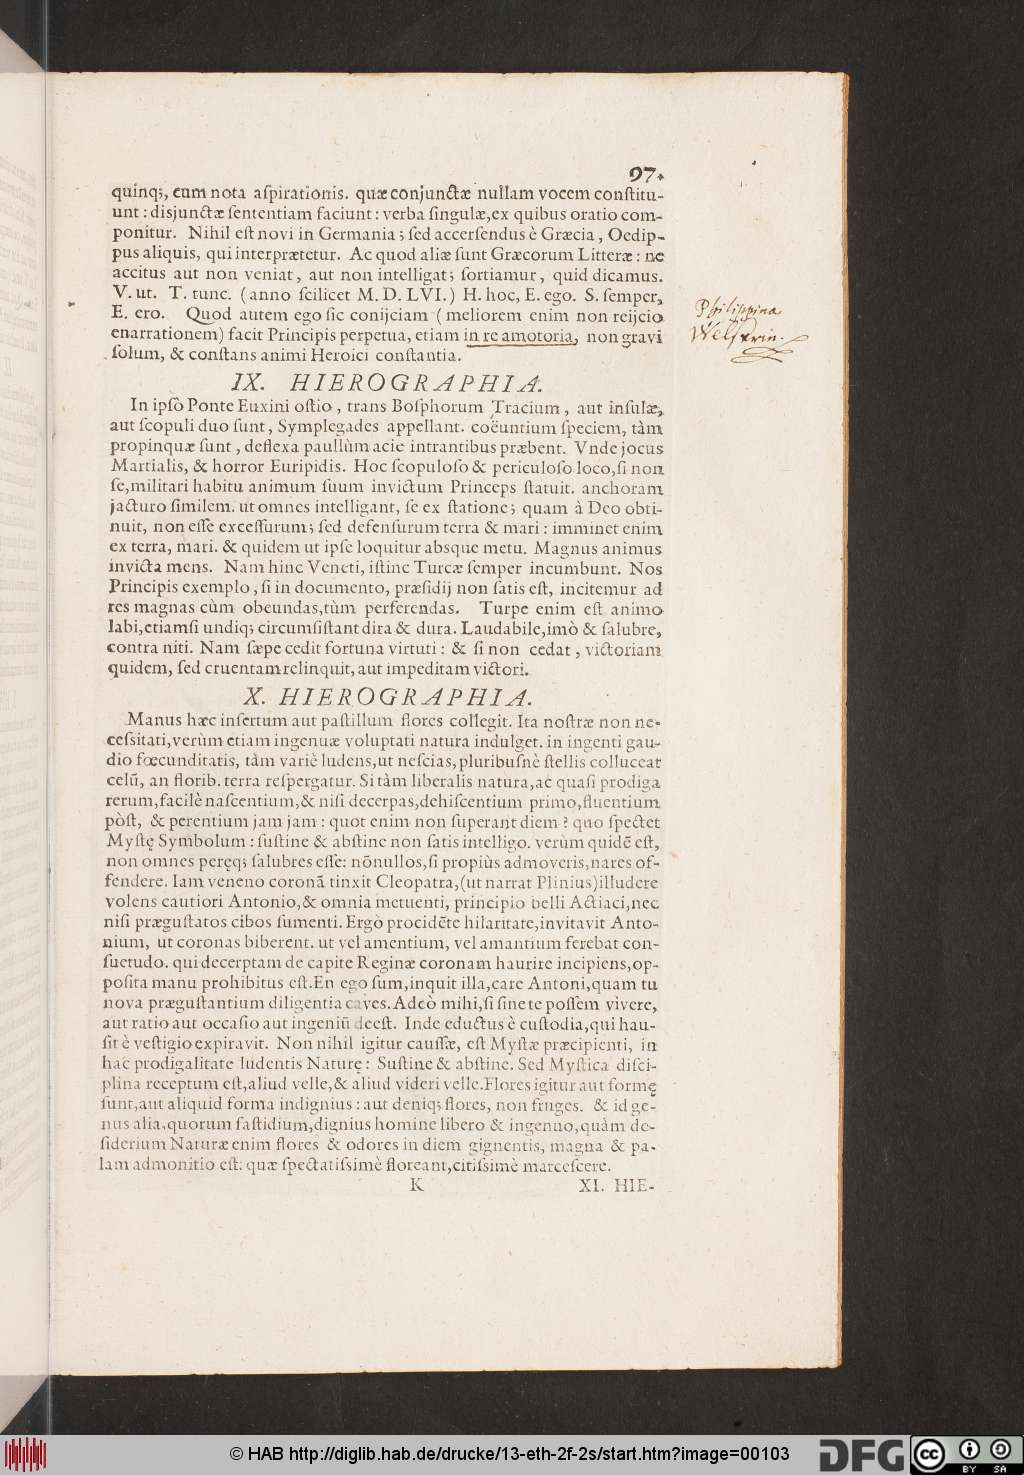 97.
quinq;, cum nota aſpirationis. quæ conjunctæ nullam vocem conſtitu-
unt : disjunctæ ſententiam faciunt : verba ſingulæ,ex quibus oratio com-
ponitur. Nihil eſt novi in Germania ; ſed accerſendus è Græcia , Oedip-
pus aliquis, qui interprætetur. Ac quod aliæ ſunt Græcorum Litteræ : ne
accitus aut non veniat , aut non intelligat ; ſortiamur , quid dicamus.
V. ut. T. tunc. ( anno ſcilicet M. D. LVI. ) H. hoc, E. ego. S. ſemper,
E. ero. Quod autem ego ſic conijciam ( meliorem enim non reijcio
enarrationem) facit Principis perpetua, etiam in re amotoria, non gravi
ſolum, & conſtans animi Heroici conſtantia.
Philippina
Welſerin.
IX. HIEROGRAPHIA.
In ipſo Ponte Euxini oſtio , trans Boſphorum Tracium , aut inſulæ,
aut ſcopuli duo ſunt, Symplegades appellant. coëuntium ſpeciem, tàm
propinquæ ſunt , deflexa paullùm acie intrantibus præbent. Vnde jocus
Martialis, & horror Euripidis. Hoc ſcopuloſo & periculoſo loco,ſi non
ſe,militari habitu animum ſuum invictum Princeps ſtatuit. anchoram
jacturo ſimilem. ut omnes intelligant, ſe ex ſtatione ; quam à Deo obti-
nuit, non eſſe exceſſurum ; ſed defenſurum terra & mari : imminet enim
ex terra, mari. & quidem ut ipſe loquitur absque metu. Magnus animus
invicta mens. Nam hinc Veneti, iſtinc Turcæ ſemper incumbunt. Nos
Principis exemplo , ſi in documento, præſidij non ſatis eſt, incitemur ad
res magnas cùm obeundas,tùm perferendas. Turpe enim eſt animo
labi,etiamſi undiq; circumſiſtant dira & dura. Laudabile,imò & ſalubre,
contra niti. Nam ſæpe cedit fortuna virtuti : & ſi non cedat , victoriam
quidem, ſed cruentam relinquit, aut impeditam victori.
X. HIEROGRAPHIA.
Manus hæc inſertum aut paſtillum flores collegit. Ita noſtræ non ne-
ceſsitati,verùm etiam ingenuæ voluptati natura indulget. in ingenti gau-
dio fœcunditatis, tàm variè ludens,ut neſcias,pluribuſnè ſtellis colluceat
celū, an florib. terra reſpergatur. Si tàm liberalis natura,ac quaſi prodiga
rerum,facilè naſcentium,& niſi decerpas,dehiſcentium primo,fluentium
pòſt, & pereuntium jam jam : quot enim non ſuperant diem ? quo ſpectet
Myſtę Symbolum : ſuſtine & abſtine non ſatis intelligo. verùm quidē eſt,
non omnes peręq; ſalubres eſſe: nōnullos,ſi propiùs admoveris,nares of-
fendere. Iam veneno coronā tinxit Cleopatra,(ut narrat Plinius)illudere
volens cautiori Antonio,& omnia metuenti, principio belli Actiaci,nec
niſi præguſtatos cibos ſumenti. Ergò procidēte hilaritate,invitavit Anto-
nium, ut coronas biberent. ut vel amentium, vel amantium ferebat con-
ſuetudo. qui decerptam de capite Reginæ coronam haurire incipiens,op-
poſita manu prohibitus eſt.En ego ſum,inquit illa,care Antoni,quam tu
nova præguſtantium diligentia caves. Adeò mihi,ſi ſine te poſſem vivere,
aut ratio aut occaſio aut ingeniū deeſt. Inde eductus è cuſtodia,qui hau-
ſit è veſtigio expiravit. Non nihil igitur cauſſæ, eſt Myſtæ præcipienti, in
hac prodigalitate ludentis Naturę : Suſtine & abſtine. Sed Myſtica diſci-
plina receptum eſt,aliud velle,& aliud videri velle.Flores igitur aut formę
ſunt,aut aliquid forma indignius : aut deniq; flores, non fruges. & id ge-
nus alia,quorum faſtidium,dignius homine libero & ingenuo,quàm de-
ſiderium Naturæ enim flores & odores in diem gignentis, magna & pa-
lam admonitio eſt: quæ ſpectatiſsimè floreant,citiſsimè marceſcere.
K XI. HIE-
© HAB http://diglib.hab.de/drucke/13-eth-2f-2s/start.htm?image=00103
DFG
cc BY SA